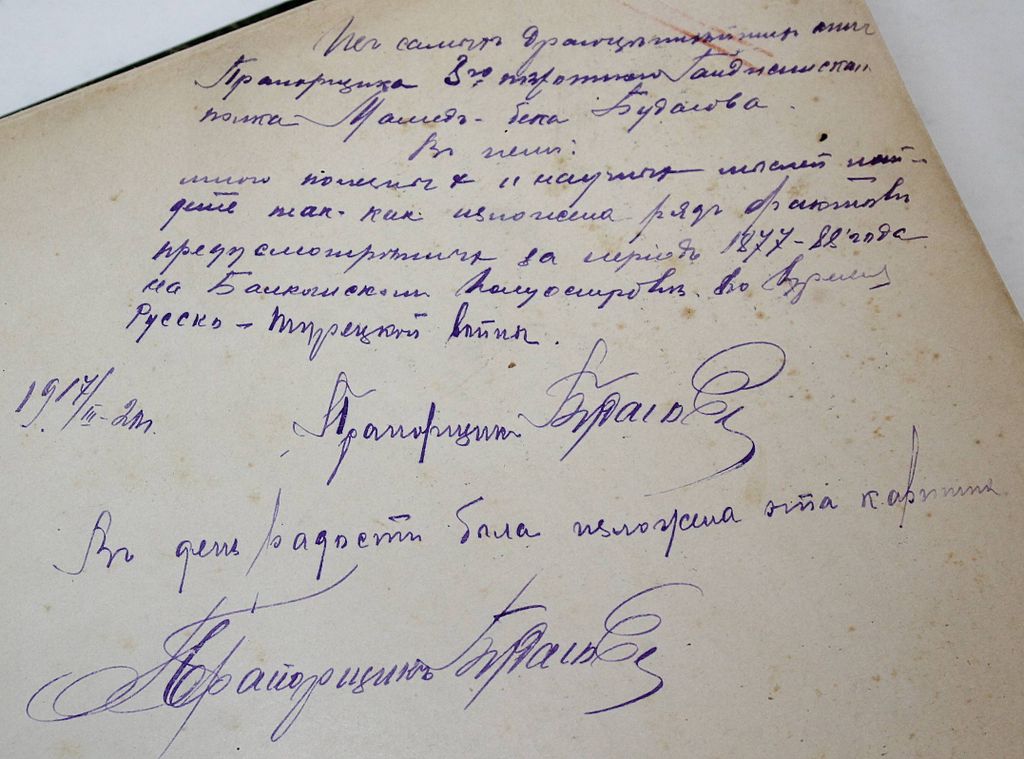 Изъ самыхъ драгоцѣннѣйшихъ книг
Прапорщика 3го
полка Мамедъ-бека Будагова.
Въ ней:
много полезныхъ и научныхъ мыслей най-
дете так-как изложена рядъ фактовъ
за періодъ 1877-88 года
на Балканскомъ Полуостровѣ во время
Русско-Турецкой войны.
1917/III-2
Прапорщикъ Будаговъ
Въ день радости была изложена эта картина
Прапорщикъ Будаговъ